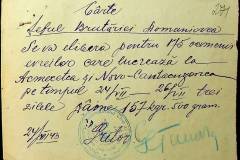 Carte
271
Șeful Brutăriei Domaniovca
Se va elibera pentru 175 oameni
evreilor care lucrează la
Acmecetca și Novo-Cantacuzovca
pe timpul 24/VII – 26/VII trei
zilele pâine 157 kgr. 500 gram.
24/VII 43 Pretor